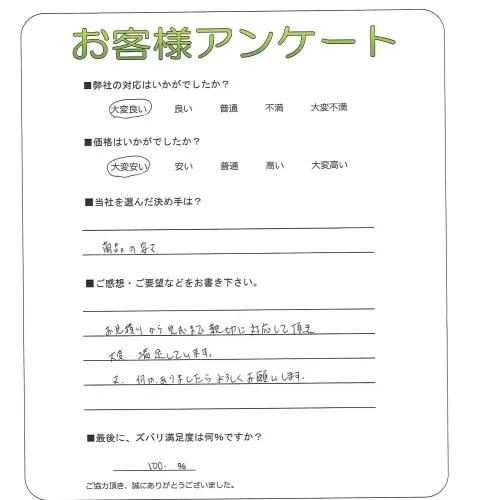 お客様アンケート
■弊社の対応はいかがでしたか？
大変良い 良い 普通 不満 大変不満
■価格はいかがでしたか？
大変安い 安い 普通 高い 大変高い
■当社を選んだ決め手は？
商品の安さ
■ご感想・ご要望などをお書き下さい。
お見積りから 親切に対応して頂き
大変 満足しています。
又、何かありましたらよろしくお願いします。
■最後に、ズバリ満足度は何%ですか？
100. %
ご協力頂き、誠にありがとうございました。